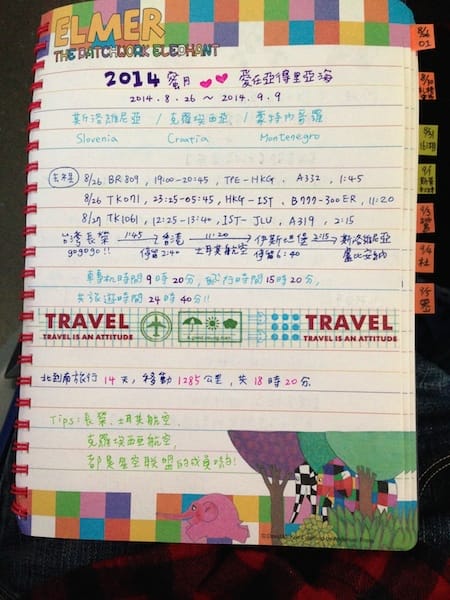 ELMER
THE PATCHWORK ELEPHANT
2014 蜜月 愛在亞得里亞海
2014.8.26 ~ 2014.9.9
斯洛維尼亞 / 克羅埃西亞 / 蒙特內哥羅
Slovenia Croatia Montenegro
去程 8/26 BR809, 19:00-20:45, TPE-HKG, A332, 1:45
8/26 TK071, 23:25-05:45, HKG-IST, B777-300ER, 11:20
8/27 TK1061, 12:25-13:40, IST-LJU, A319, 2:15
台灣長榮 1:45 香港 11:20 伊斯坦堡 2:15 斯洛維尼亞
gogogo!! 停留2:40 土耳其航空 停留6:40 盧比安納
轉機時間9時20分, 飛行時間15時20分,
共旅遊時間24時40分!!
TRAVEL
TRAVEL IS AN ATTITUDE
TRAVEL
TRAVEL IS AN ATTITUDE
北到南旅行14天, 移動1285公里, 共18時20分
Tips: 長榮、土耳其航空、
克羅埃西亞航空,
都是星空聯盟的成員唷!
8/26
01
8/31
9/1
9/3
9/4
9/5